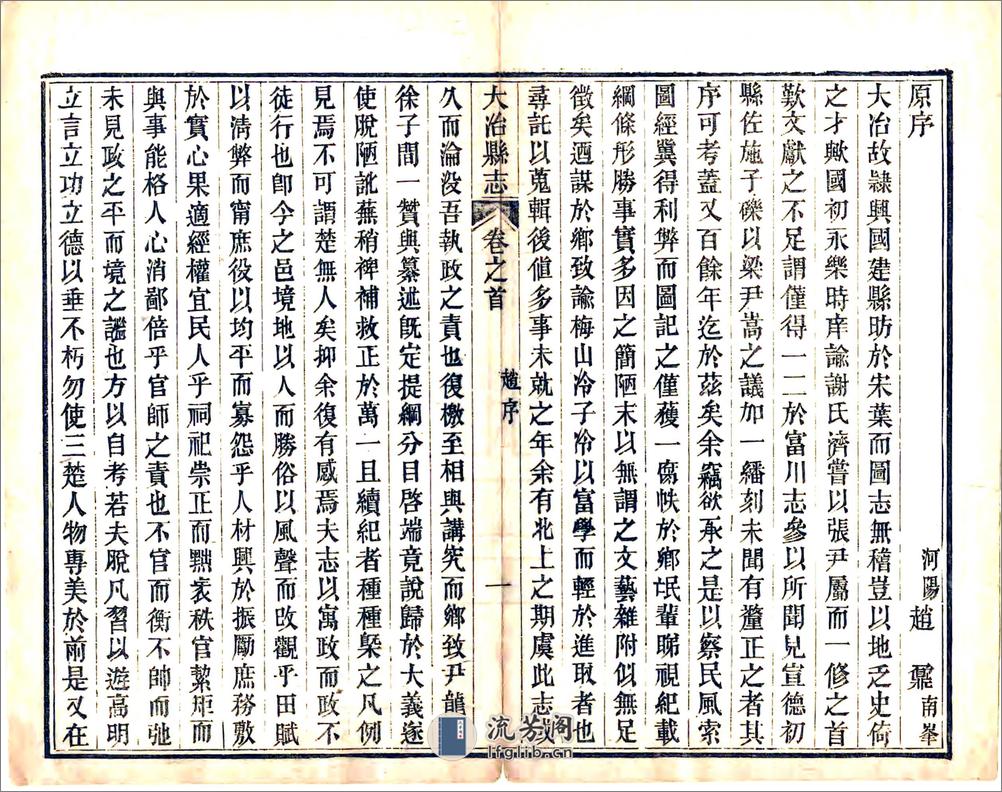 原序
河陽趙鼐南峯
大冶故隸興國建縣昉於朱葉而圖志無稽豈以地乏史倚
之才歟國初永樂時庠諭謝氏濟嘗以張尹屬而一修之首
歎文獻之不足謂僅得一二於富川志參以所聞見宣德初
縣佐施子礫以梁尹嵩之議加一繙刻未聞有釐正之者其
序可考蓋又百餘年迄於茲矣余竊欲承之是以察民風索
圖經冀得利弊而圖記之僅獲一傷帙於鄉氓輩睇視紀載
綱條形勝事實多因之簡陋末以無謂之文藝雜附似無足
徵矣迺謀於鄉致諭梅山冷子冷以富學而輕於進取者也
尋託以蒐輯後値多事未就之年余有北上之期虞此志或
大冶縣志 卷之首 趙序 一
久而淪没吾執政之責也復檄至相與講究而鄉致尹龍
徐子間一贊與纂述旣定提綱分目啓端竟說歸於大義遂
使脫陋訛蕪稍裨補救正於萬一且續紀者種種槩之凡例
見焉不可謂楚無人矣抑余復有感焉夫志以寓政而政不
徒行也卽今之邑境地以人而勝俗以風聲而改觀乎田賦
以清弊而甯庶役以均平而寡怨乎人材興於振勵庶務敷
於實心果適經權宜民人乎祠祀崇正而黜衺秩官絜矩而
與事能格人心消鄙倍乎官師之責也不官而衡不帥而弛
未見政之平而境之謐也方以自考若夫脫凡習以遊高明
立言立功立德以垂不朽勿使三楚人物專美於前是又在
流芳阁
lfglib.cn